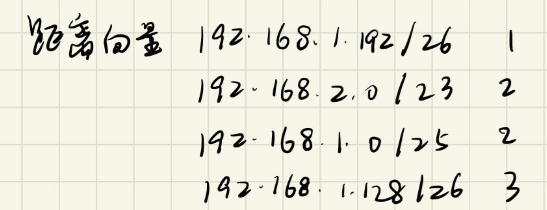 距离向量 192.168.1.192/26 1
192.168.2.0/23 2
192.168.1.0/25 2
192.168.1.128/26 3